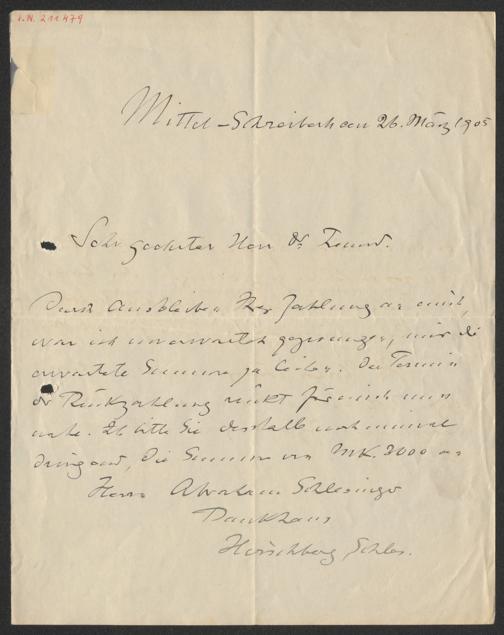 I.N. 211479
Mittel-Schreiberhau 26. März 1905
Sehr geehrter Herr Dr. Freund.
Durch Ausbleiben Ihrer Zahlung an mich,
war ich unerwartet gezwungen, mir die
erwartete Summe zu leihen. Der Termin
der Rückzahlung rückt für mich nun
nahe. Ich bitte Sie deshalb noch einmal
dringend, die Summe von MK. 3000 an
Herrn Abraham Schlesinger
Bankhaus
Hirschberg Schles.